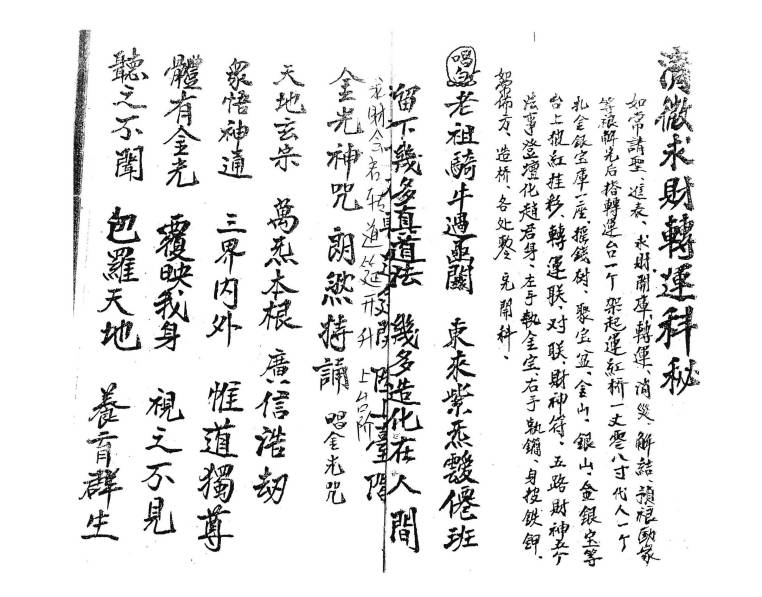 清微求財轉運科秘
如常請聖、進表、求財開庫、轉運、消災、解結、
等禳解完后搭轉運台一个 架起運紅桥一丈零八寸代人一个
扎金銀宝庫一座、摇錢树、聚宝盆、金山、銀山、金銀宝等
台上披紅挂彩、轉運联、对联、財神符、五路財神五个
法事登壇化趙君身、左手執金宝、右手執鐧、身披鉄钾、
佈方、造桥、各处整 完開科、
唱 老祖騎牛過函關 東來紫炁靉僊班
留下幾多真道法 幾多造化在人間
上台阶
金光神咒 朗然持誦 唱金光咒
天地玄宗 萬炁本根 廣信浩劫
眾悟神通 三界内外 惟道獨尊
體有金光 覆映我身 視之不見
聽之不聞 包羅天地 養育群生